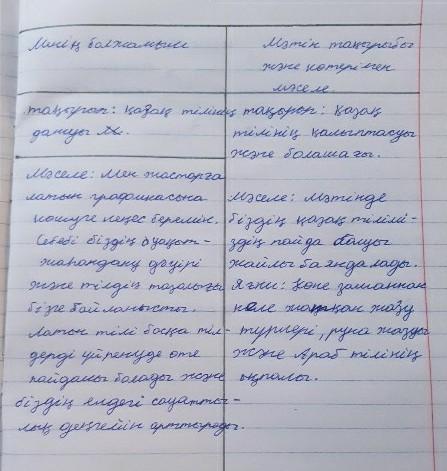 Менің болжамым
Мәтін тақырыбы
және көтерілген
мәселе
тақырып: қазақ тілінің
дамуы
тақырып: Қазақ
тілінің қалыптасуы
және болашағы.
Мәселе: Мен жастарға
латын графикасына
көшуге кеңес беремін.
Себебі біздің уақыт -
жаһандану дәуірі
және тілдің тазалығы
бізге байланысты.
Латын тілі басқа тіл-
дерді үйренуде өте
пайдалы болады және
біздің елдегі сауатты-
лық деңгейін арттырады.
Мәселе: Мәтінде
біздің қазақ тілімі-
здің пайда болуы
жайлы баяндалады.
Яғни: Көне заманнан
келе жатқан жазу
түрлері, руна жазуы
және Араб тілінің
ықпалы.